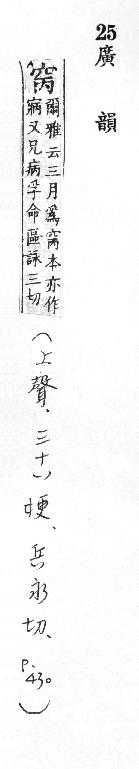 25 廣韻
窉 爾雅云三月爲窉本亦作
寎又兄病孚命區詠三切
(上聲、三十八梗、兵永切、p.430)